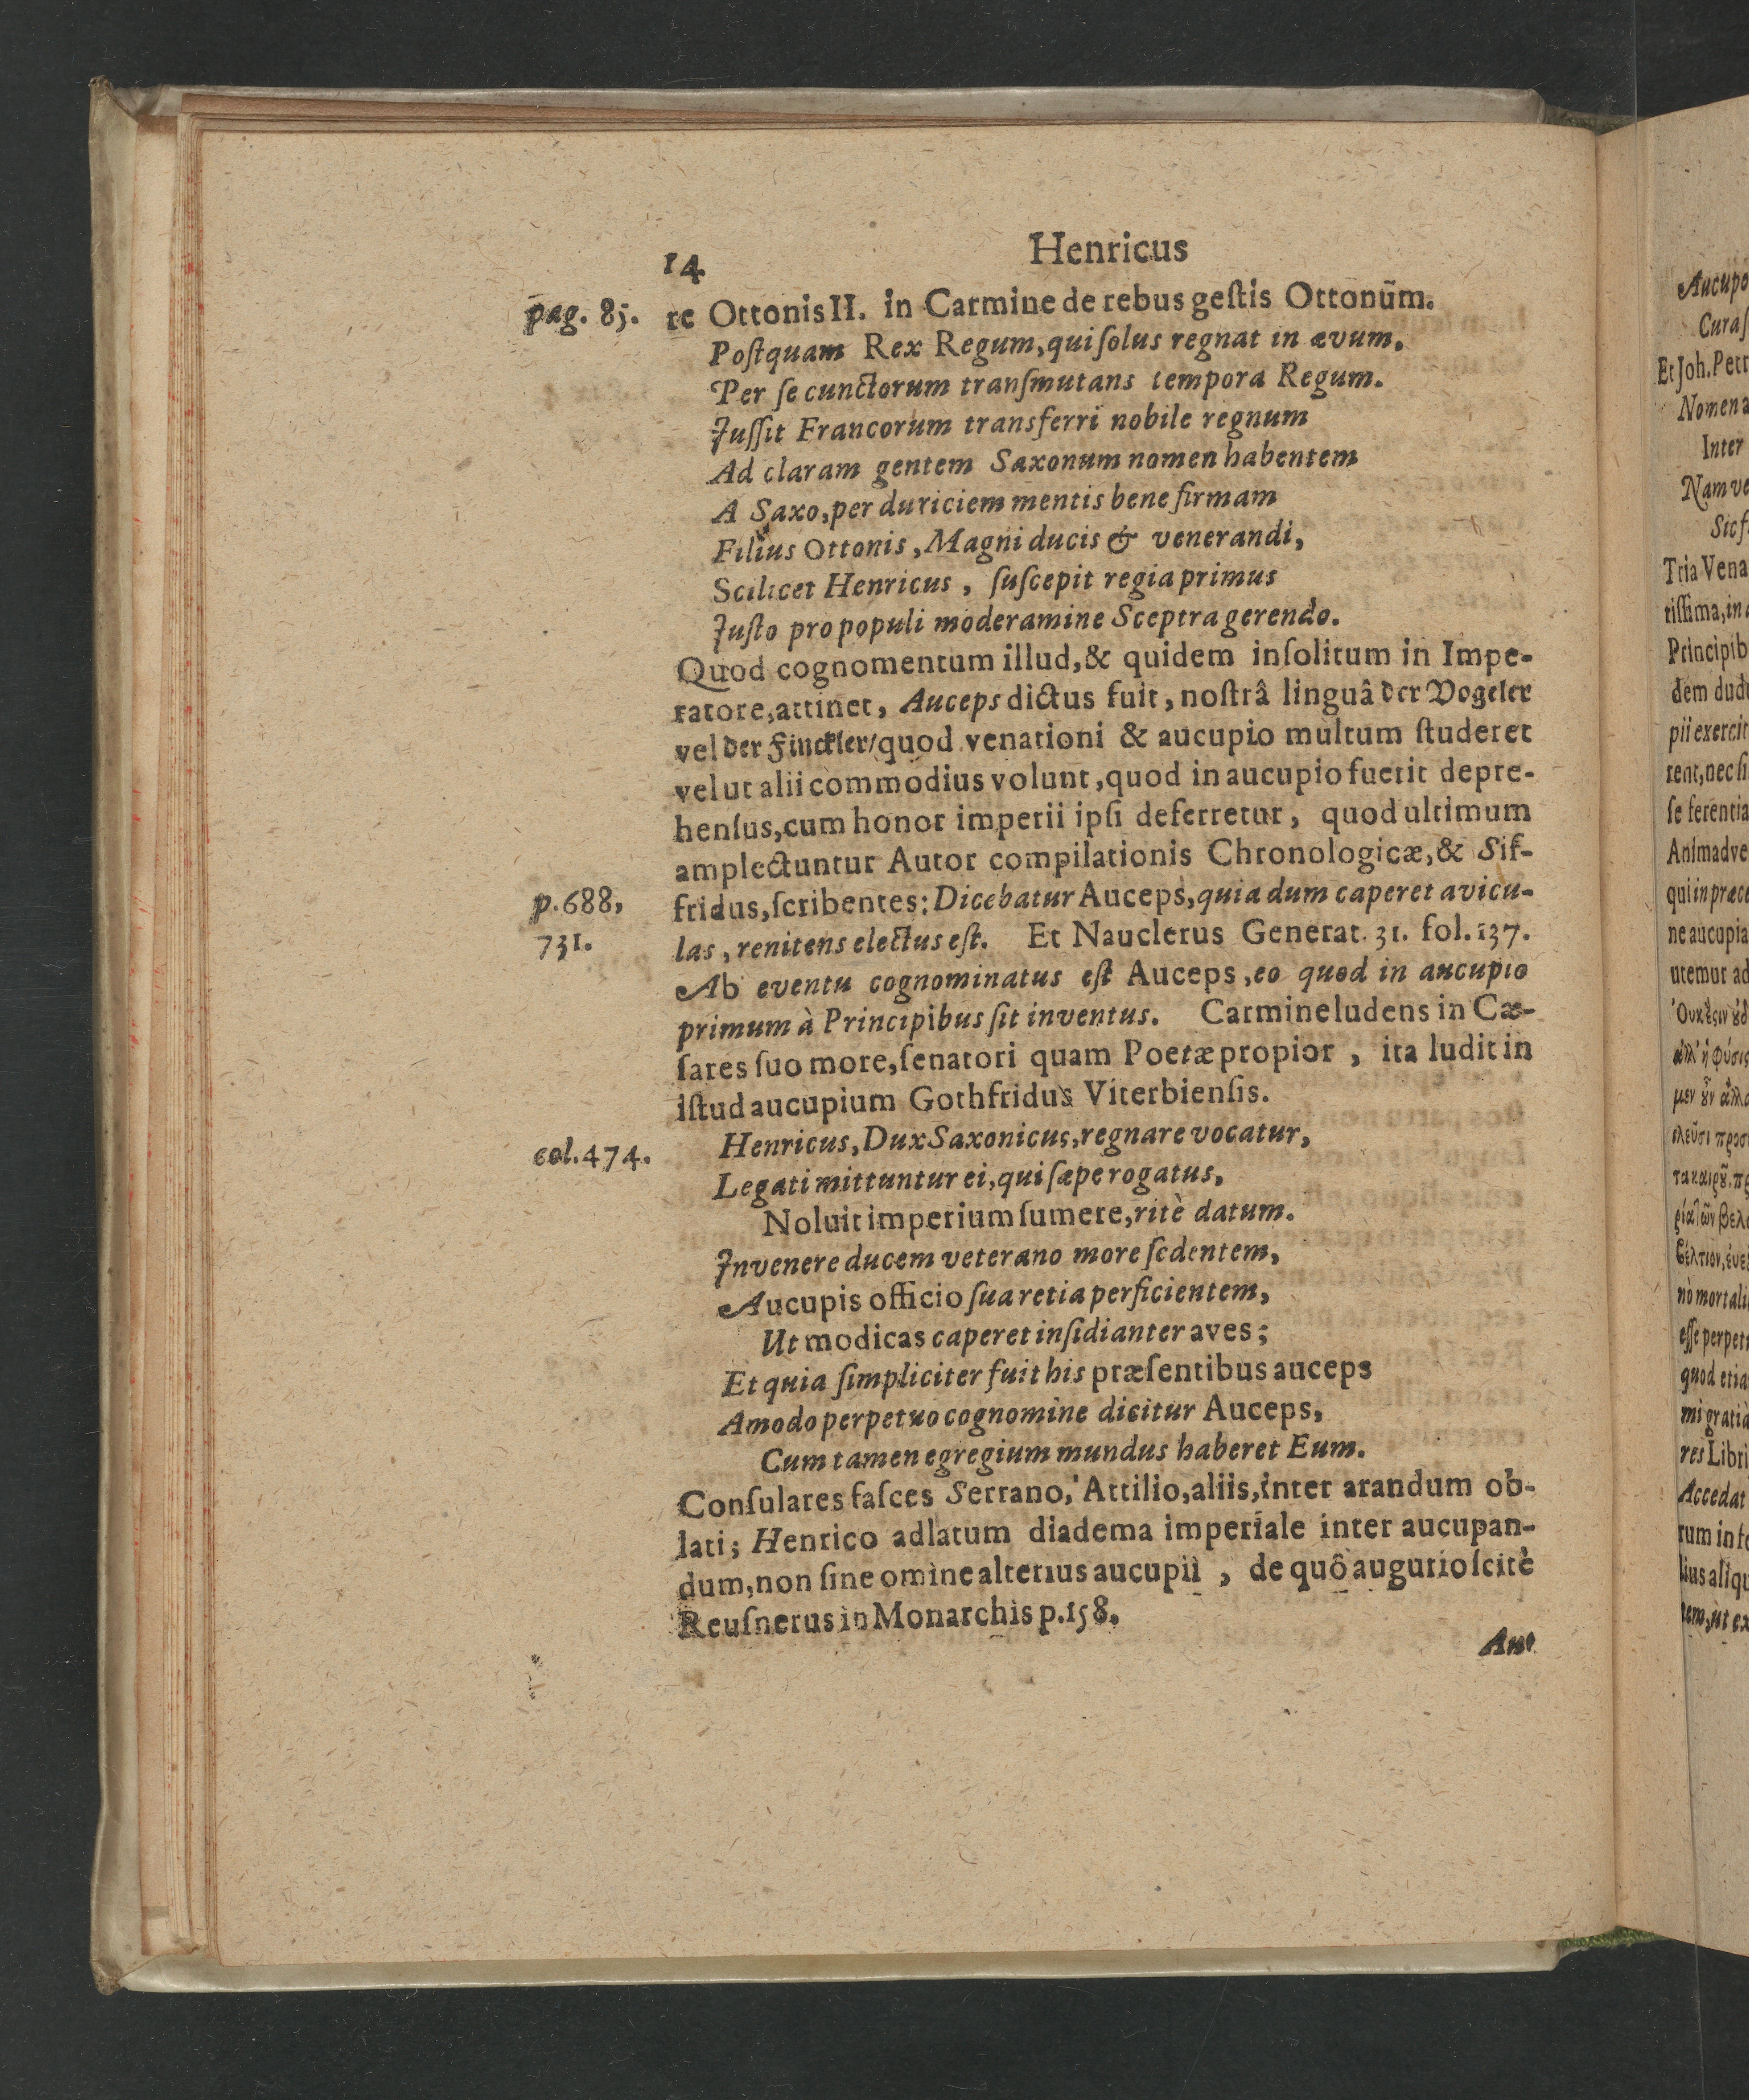 14 Henricus
pag. 85. re Ottonis II. in Carmine de rebus geſtis Ottonũm.
Poſtquam Rex Regum, qui ſolus regnat in ævum.
Per ſe cunctorum tranſmutans tempora Regum.
Juſſit Francorum transferri nobile regnum
Ad claram gentem Saxonum nomen habentem
A Saxo, per duriciem mentis bene firmam
Filius Ottonis, Magni ducis & venerandi,
Scilicet Henricus, ſuſcepit regia primus
Juſto pro populi moderamine Sceptra gerendo.
Quod cognomentum illud, & quidem inſolitum in Impe-
ratore, attinet, Auceps dictus fuit, noſtrâ linguâ der Vogeler
vel der Finckler/ quod venationi & aucupio multum ſtuderet
vel ut alii commodius volunt, quod in aucupio fuerit depre-
henſus, cum honor imperii ipſi deferretur, quod ultimum
amplectuntur Autor compilationis Chronologicæ, & Sif-
p. 688, fridus, ſcribentes: Dicebatur Auceps, quia dum caperet avicu-
731. las, renitens electus eſt. Et Nauclerus Generat. 31. fol. 137.
Ab eventu cognominatus eſt Auceps, eo quod in aucupio
primum à Principibus ſit inventus. Carmine ludens in Cæ-
ſares ſuo more, ſenatori quam Poetæ propior, ita ludit in
iſtud aucupium Gothfridus Viterbienſis.
col. 474. Henricus, Dux Saxonicus, regnare vocatur,
Legati mittuntur ei, qui ſæpe rogatus,
Noluit imperium ſumere, ritè datum.
Invenere ducem veterano more ſedentem,
Aucupis officio ſua retia perficientem,
Ut modicas caperet inſidianter aves;
Et quia ſimpliciter fuit his præſentibus auceps
Amodo perpetuo cognomine dicitur Auceps,
Cum tamen egregium mundus haberet Eum.
Conſulares faſces Serrano, Attilio, aliis, inter arandum ob-
lati; Henrico adlatum diadema imperiale inter aucupan-
dum, non ſine omine alterius aucupii, de quô augurio ſcitè
Reuſnerus in Monarchis p. 158.
Au-
Aucupo
Et Joh. Petr
Inter
Tria Vena
tiſſima, in
Principib
pii exercit
ſe ferentia
Animadve
qui in præce
ne aucupia
utemur ad
nò mortali
eſſe perpet
quod etia
mi gratiâ
res Libri
Accedat